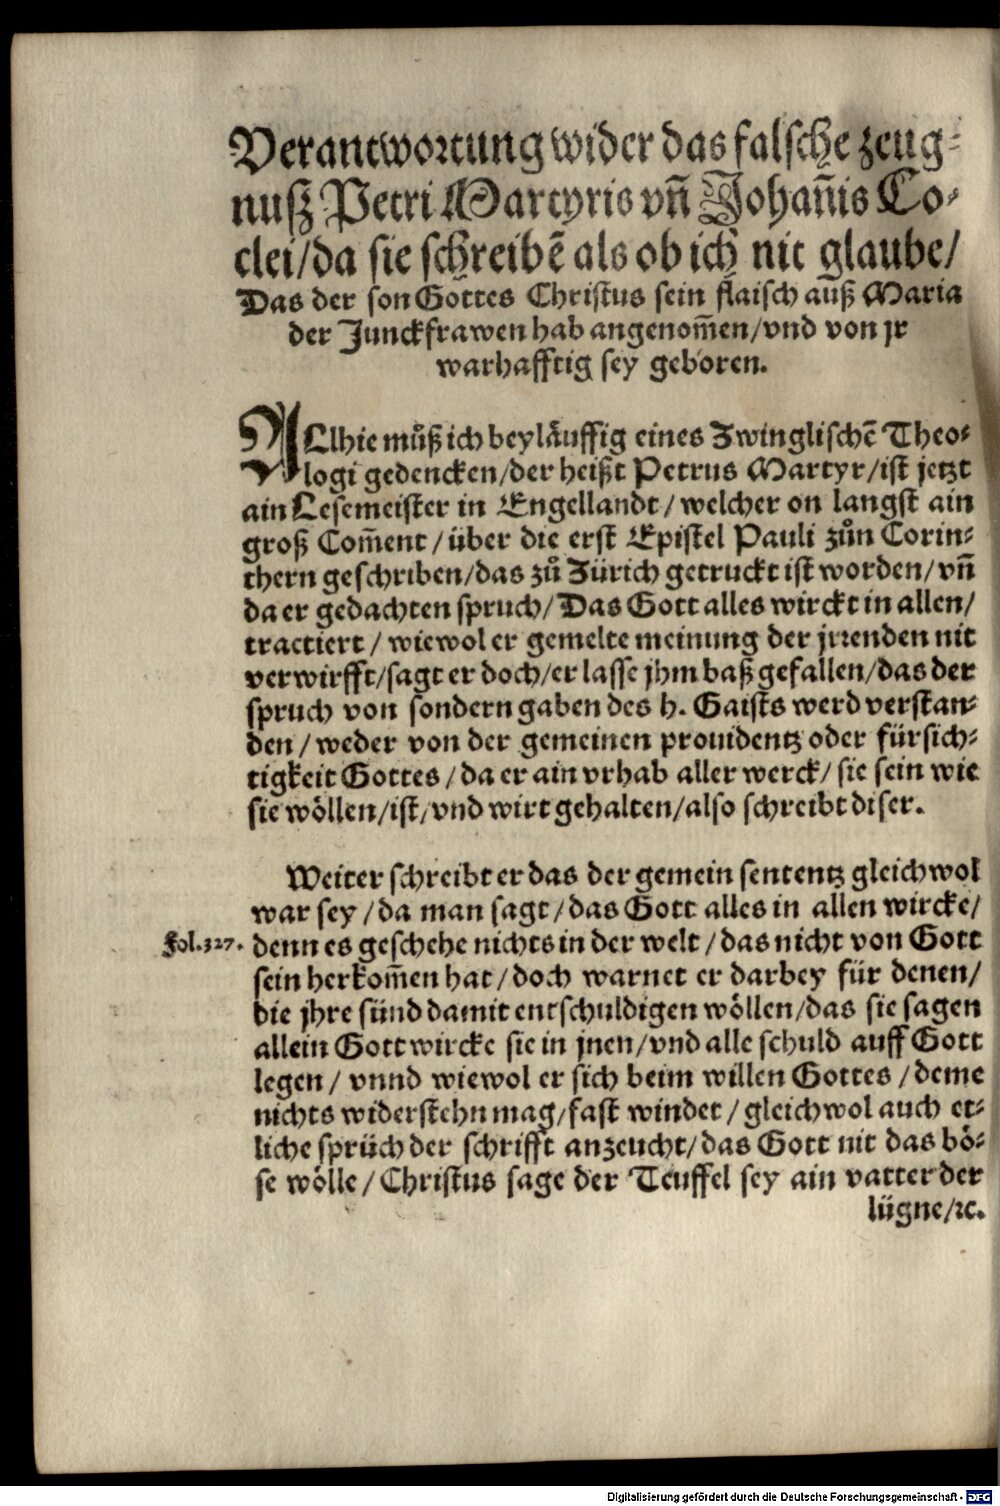 Verantwortung wider das falsche zeug-
nuß Petri Martyris vñ Johañis Co-
clei/da sie schreibẽ als ob ich nit glaube/
Das der son Gottes Christus sein flaisch auß Maria
der Junckfrawen hab angenom̃en/vnd von jr
warhafftig sey geboren.
ALlhie můß ich beyläuffig eines Zwinglischẽ Theo-
logi gedencken/der heißt Petrus Martyr/ist jetzt
ain Lesemeister in Engellandt/welcher on langst ain
groß Com̃ent/über die erst Epistel Pauli zůn Corin-
thern geschriben/das zů Zürich getruckt ist worden/vñ
da er gedachten spruch/Das Gott alles wirckt in allen/
tractiert/wiewol er gemelte meinung der jrrenden nit
verwirfft/sagt er doch/er lasse jhm baß gefallen/das der
spruch von sondern gaben des h. Gaists werd verstan-
den/weder von der gemeinen prouidentz oder fürsich-
tigkeit Gottes/da er ain vrhab aller werck/sie sein wie
sie wöllen/ist/vnd wirt gehalten/also schreibt diser.
Weiter schreibt er das der gemein sententz gleichwol
war sey/da man sagt/das Gott alles in allen wircke/
Fol.327. denn es geschehe nichts in der welt/das nicht von Gott
sein herkom̃en hat/doch warnet er darbey für denen/
die jhre sünd damit entschuldigen wöllen/das sie sagen
allein Gott wircke sie in jnen/vnd alle schuld auff Gott
legen/vnnd wiewol er sich beim willen Gottes/deme
nichts widerstehn mag/fast windet/gleichwol auch et-
liche sprüch der schrifft anzeucht/das Gott nit das bö-
se wölle/Christus sage der Teuffel sey ain vatter der
lügne/ꝛc.
Digitalisierung gefördert durch die Deutsche Forschungsgemeinschaft - DFG